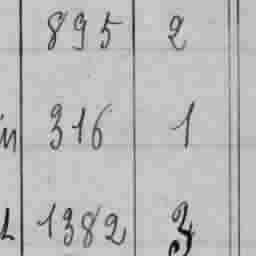 895 2
316 1
1382 3